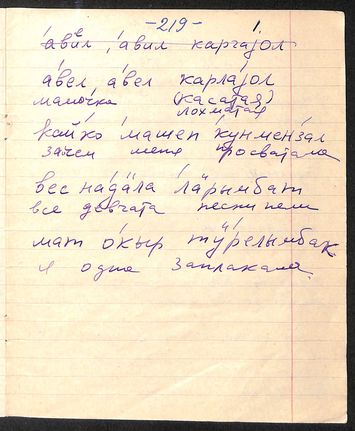 -219- 1.
а́вел, а́вил каргајол
а́вел а́вел карлајол
мамочка (касатая)
лохматая
кайко машеп кунмензал
зачем меня просватала
вес нада́ла лӓрымбат
все девчата песни пели
мат о́кыр тӱ́релымбак
я одна заплакала.